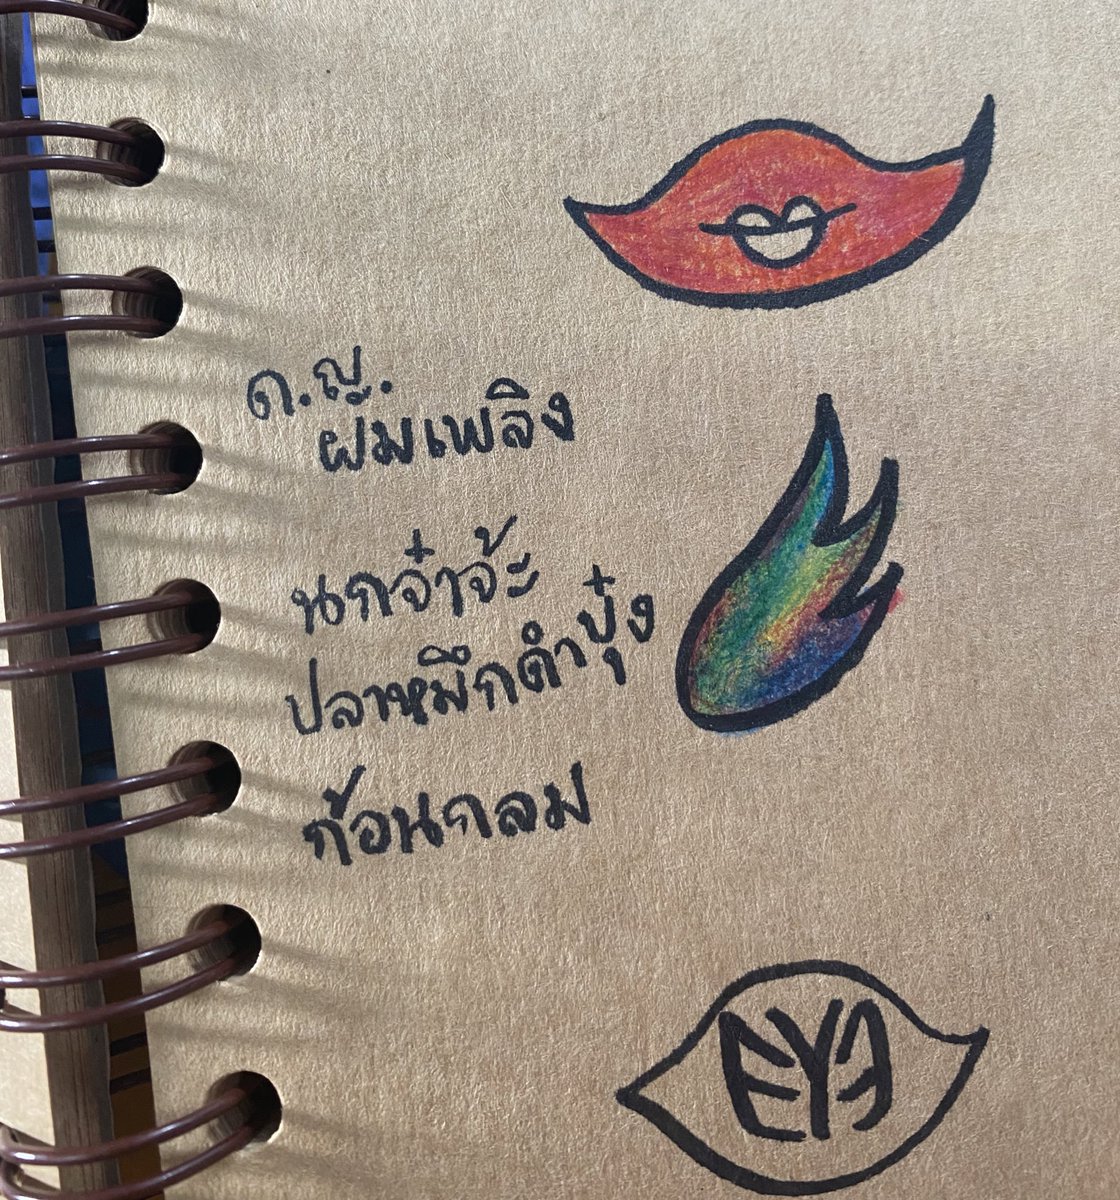 ด.ญ.
ผมเพลิง
นกจ๋าจ้ะ
ปลาหมึกดำปุ๋ง
ก้อนกลม
EYE